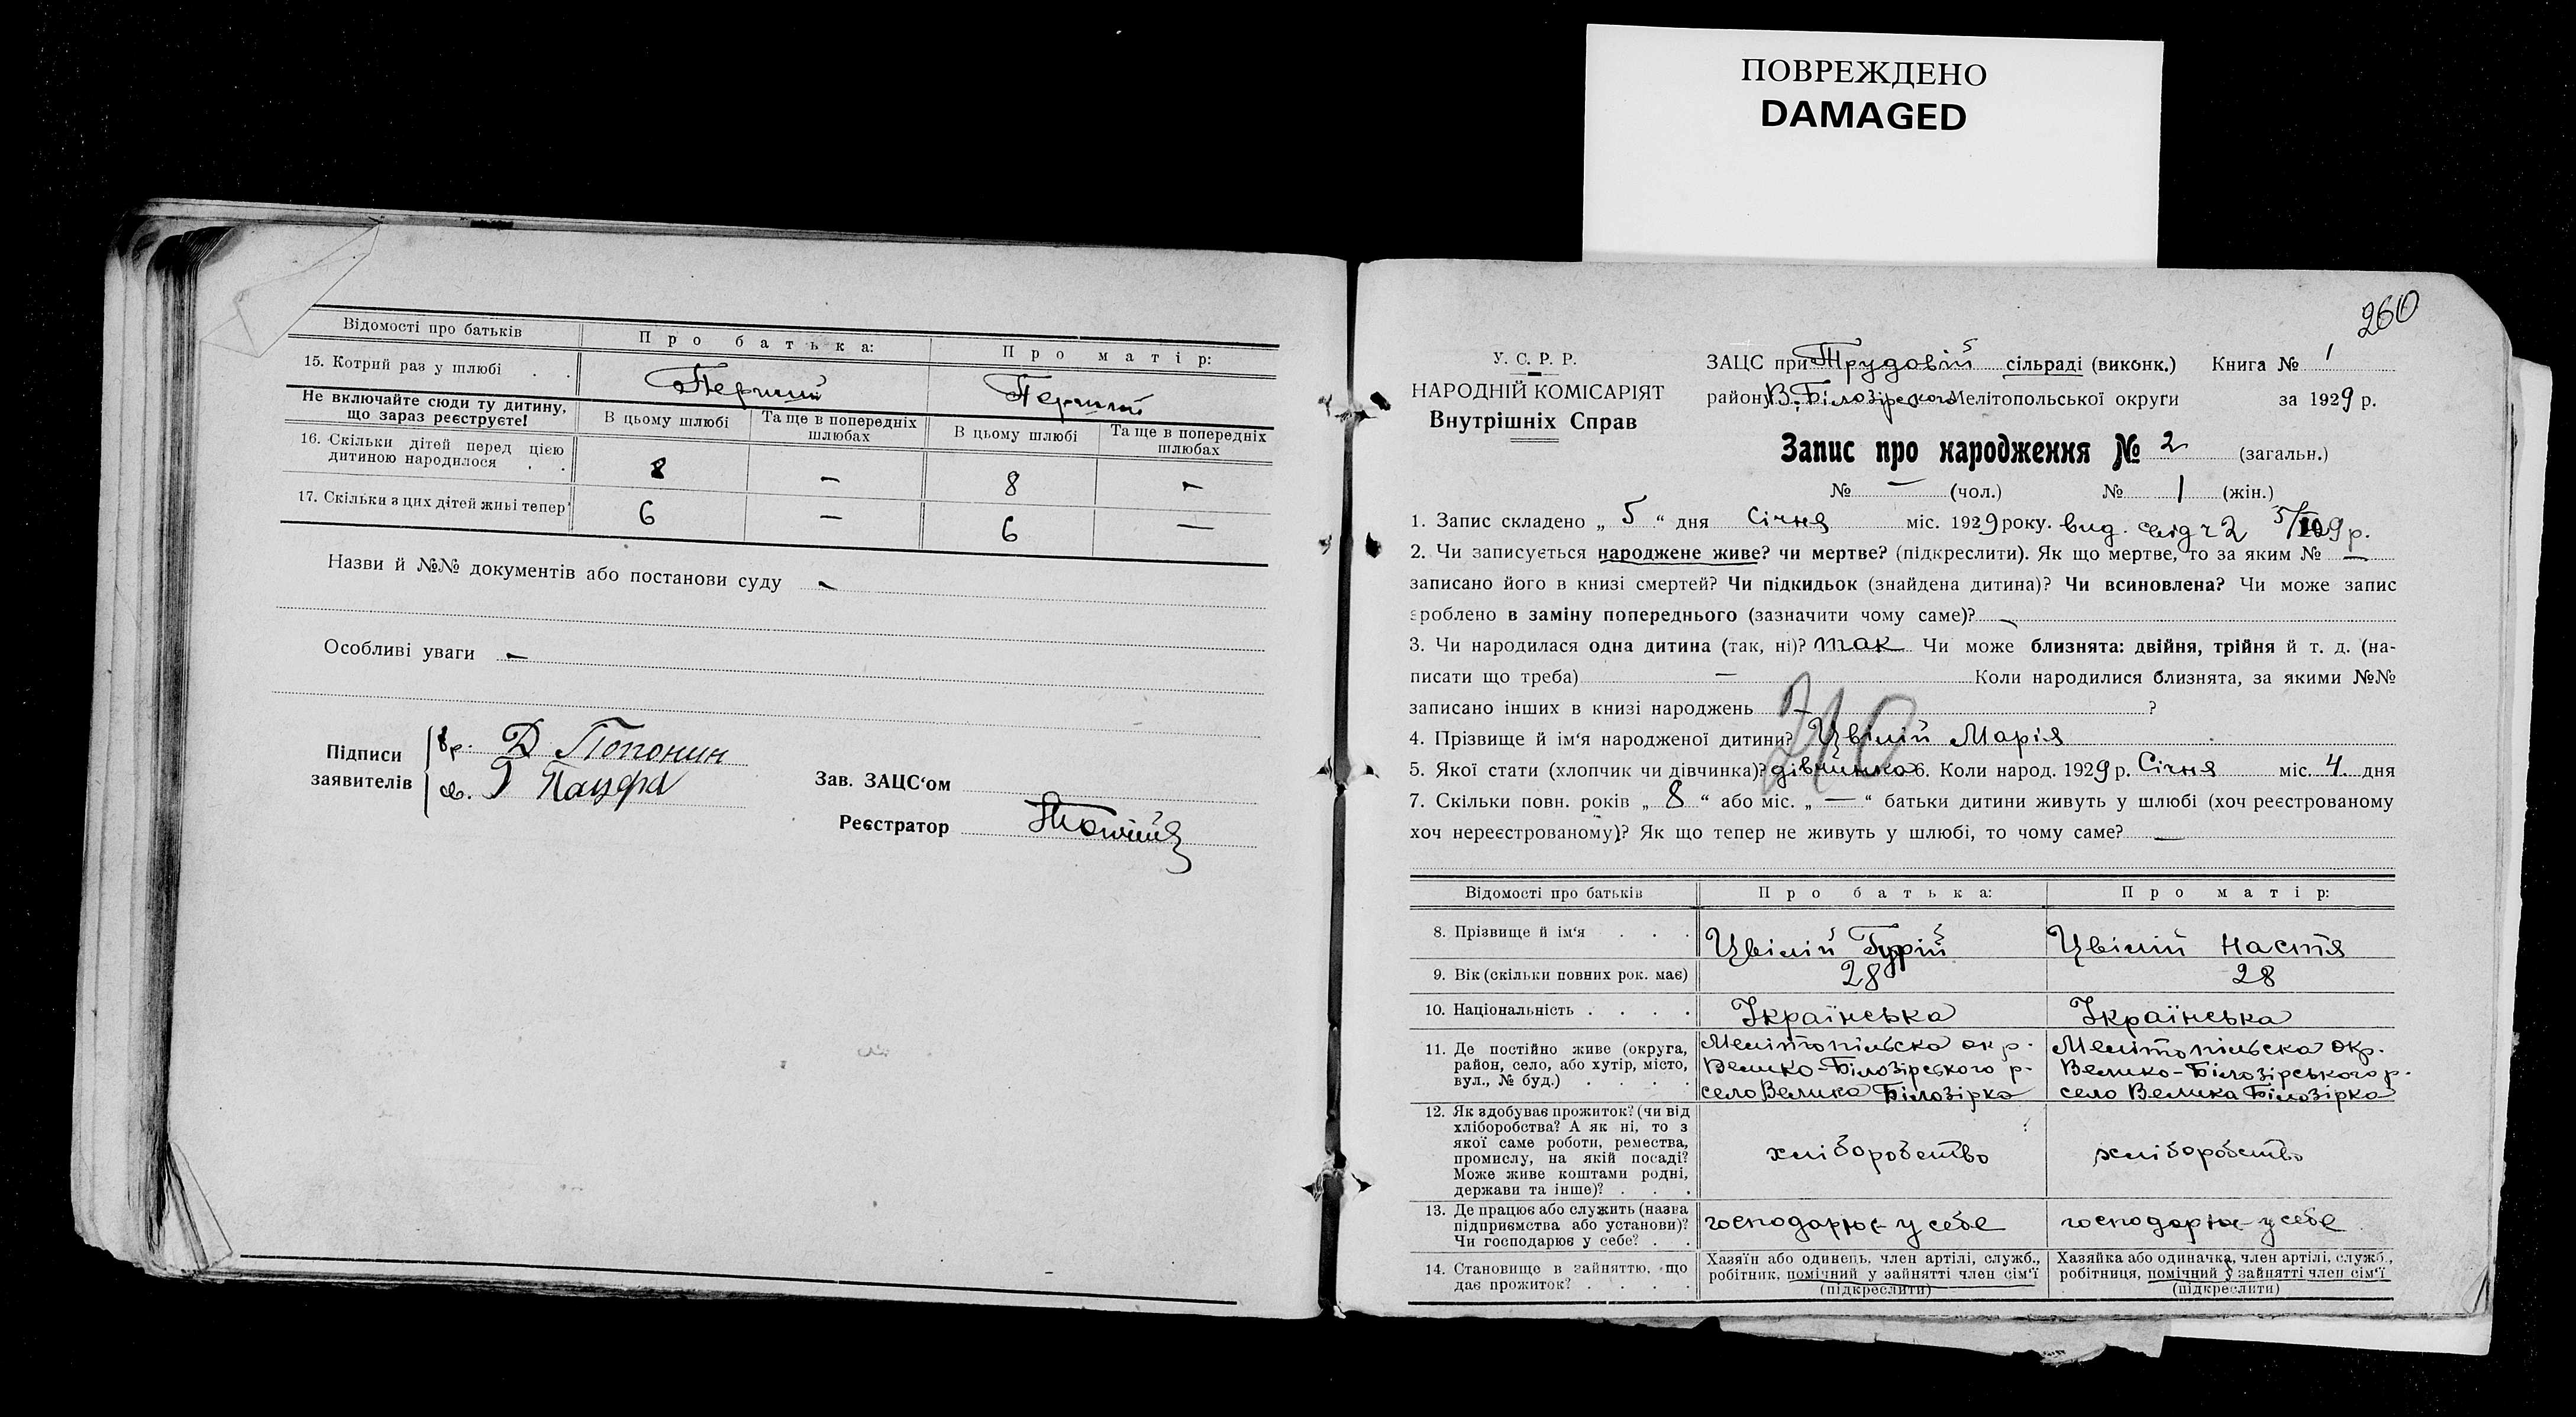 ПОВРЕЖДЕНО
DAMAGED
Відомості про батьків
Про батька:
Про матір:
15. Котрий раз у шлюбі . .
Перший
Перший
Не включайте сюди ту дитину,
що зараз реєструєте!
В цьому шлюбі
Та ще в попередніх
шлюбах
В цьому шлюбі
Та ще в попередніх
шлюбах
16. Скільки дітей перед цією
дитиною народилося . .
8
—
8
—
17. Скільки з цих дітей живі тепер
6
—
6
—
Назви й №№ документів або постанови суду —
Особливі уваги —
Підписи
заявителів
Д
Зав. ЗАЦС'ом
Реєстратор
260
У. С. Р. Р.
НАРОДНІЙ КОМІСАРІЯТ
Внутрішніх Справ
ЗАЦС при Трудовій сільраді (виконк.) Книга № 1
району В. Білозірського Мелітопольської округи за 1929 р.
Запис про народження № 2 (загальн.)
№ — (чол.) № 1 (жін.)
1. Запис складено „ 5 “ дня Січня міс. 1929 року. вид.
2. Чи записується народжене живе? чи мертве? (підкреслити). Як що мертве, то за яким № —
записано його в книзі смертей? Чи підкидьок (знайдена дитина)? Чи всиновлена? Чи може запис
зроблено в заміну попереднього (зазначити чому саме)? —
3. Чи народилася одна дитина (так, ні)? так Чи може близнята: двійня, трійня й т. д. (на-
писати що треба) — Коли народилися близнята, за якими №№
записано інших в книзі народжень — ?
4. Прізвище й ім'я народженої дитини? Цвілій Марія
5. Якої стати (хлопчик чи дівчинка)? дівчинка 6. Коли народ. 1929 р. Січня міс. 4. дня
7. Скільки повн. років „ 8 “ або міс. „ — “ батьки дитини живуть у шлюбі (хоч реєстрованому
хоч нереєстрованому)? Як що тепер не живуть у шлюбі, то чому саме? —
Відомості про батьків
Про батька:
Про матір:
8. Прізвище й ім'я . . .
Цвілій Гурій
Цвілій Настя
9. Вік (скільки повних рок. має)
28
28
10. Національність . . . .
Українська
Українська
11. Де постійно живе (округа,
район, село, або хутір, місто,
вул., № буд.) . . . .
Мелітопільска окр.
Велико-Білозірського р.
село Велика Білозірка
Мелітопільска окр.
Велико-Білозірського р.
село Велика Білозірка
12. Як здобуває прожиток? (чи від
хліборобства? А як ні, то з
якої саме роботи, ремества,
промислу, на якій посаді?
Може живе коштами родні,
держави та інше)? . . .
хліборобство
хліборобство
13. Де працює або служить (назва
підприємства або установи)?
Чи господарює у себе? . .
господарює у себе
господарює у себе
14. Становище в зайняттю, що
дає прожиток? . . . .
Хазяїн або одинець, член артілі, служб.,
робітник, помічний у зайнятті член сім'ї
(підкреслити)
Хазяйка або одиначка, член артілі, служб.,
робітниця, помічний у зайнятті член сім'ї
(підкреслити)